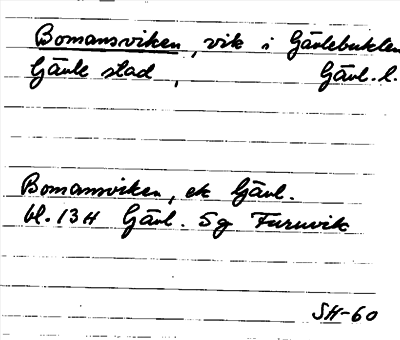 Bomansviken, vik i Gävlebukten
Gävle stad, Gävl. l.
Bomansviken, ek Gävl.
bl. 13H Gävl. 5g Furuvik
SH-60